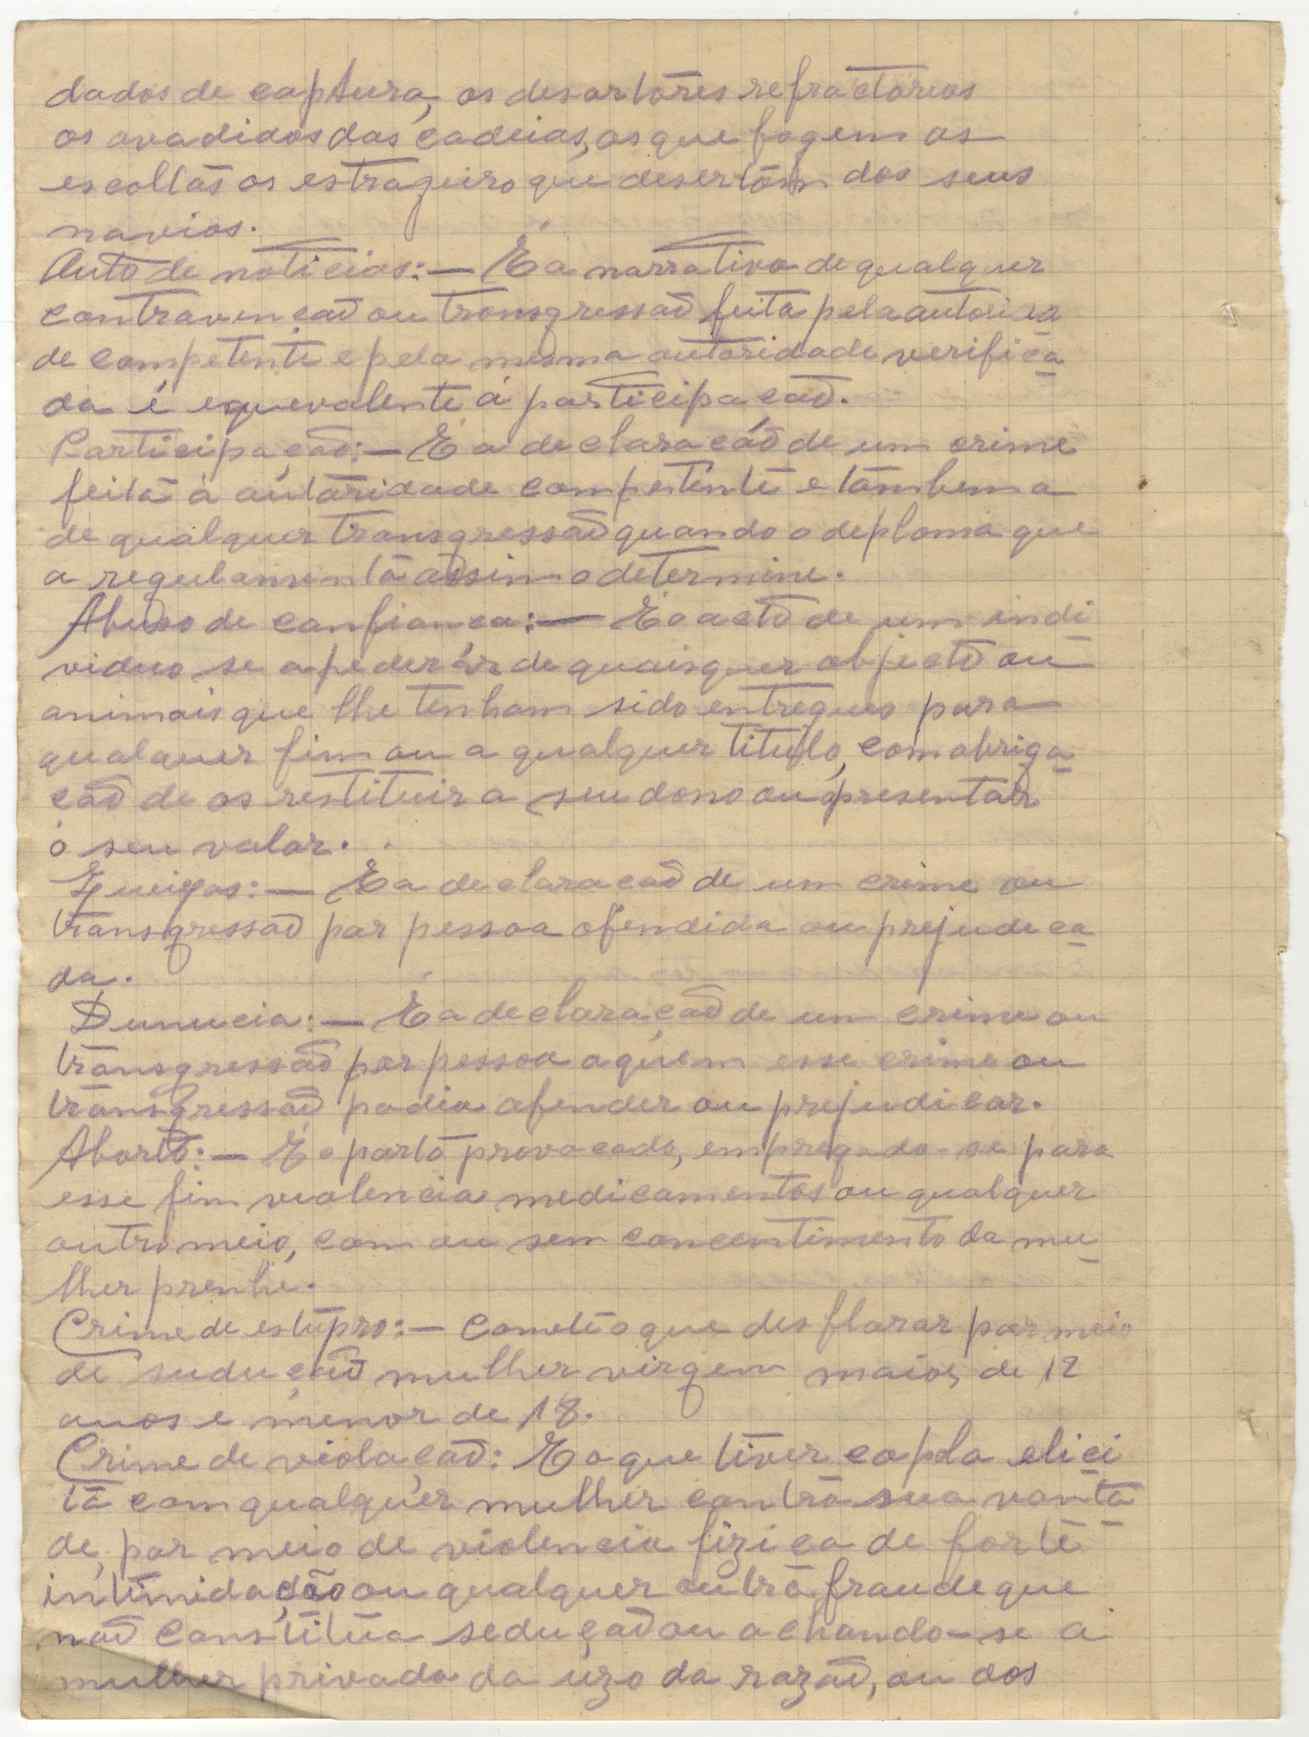 dados de captura, os desortores refractoreos
os avadidos das cadeias, os que fogem as
escoltas os estrageiro que desertam dos seus
navios.
Auto de noticias:— É a narrativa de qualquer
contravençaõ ou transgressaõ feita pela autorida
de competente e pela mesma autoridade verifica
da é equevalente á participaçaõ.
Participaçaõ:— É a declaraçaõ de um crime
feita á autoridade competente e tambem a
de qualquer transgressaõ quando o deploma que
a regulamenta assim o determine.
Abuso de confiança:— É o acto de um indi
viduo se apederár de quaisquer objecto ou
animais que lhe tenham sido entregues para
qualquer fim ou a qualquer titulo, com obriga
çaõ de os restituir a seu dono ou apresentar
o seu valor.
Queixas:— É a declaraçaõ de um crime ou
transgressaõ por pessoa ofendida ou prejudeca
da.
Dunucia:— É a declaraçaõ de um crime ou
transgressaõ por pessoa a quem esse crime ou
transgressaõ podia ofender ou prejudicar.
Aborto:— É o parto provocado, empregado-se para
esse fim violencia medicamentos ou qualquer
outro meio, com ou sem concentimento da mu
lher prenhe.
Crime de estupro:— Comete o que desflorar por meio
de seduçaõ mulher virgem maior de 12
anos e menor de 18.
Crime de violaçaõ: É o que tiver copla elici
ta com qualquer mulher contra sua vonta
de, por meio de violencia fizica de forte
intimidação ou qualquer outra fraude que
naõ constitua seduçaõ ou achando-se a
mulher privada da uzo da razaõ, ou dos